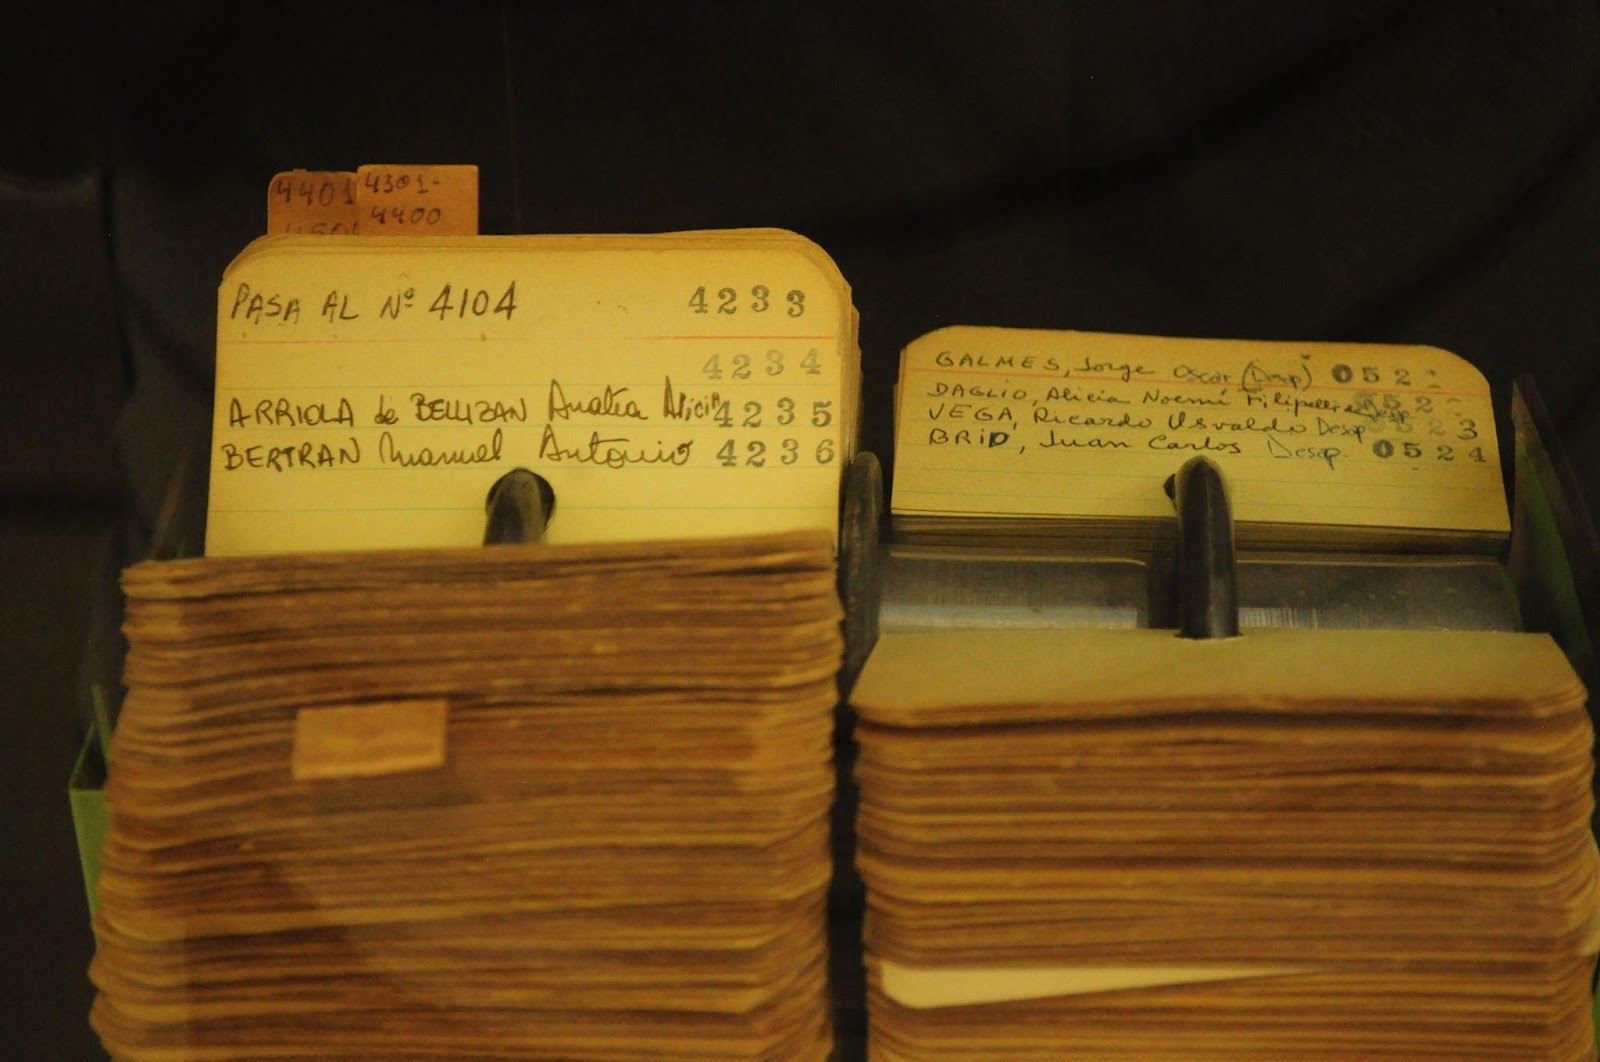 4401
4301-
4400
PASA AL Nº 4104 4233
4234
ARRIOLA de BELLIZAN Amalia Alicia 4235
BERTRAN Manuel Antonio 4236
GALMES, Jorge Oscar (Desp) 052
DAGLIO, Alicia Noemí Filipelli de Desp 052
VEGA, Ricardo Usvaldo Desap 0523
BRID, Juan Carlos Desap. 0524